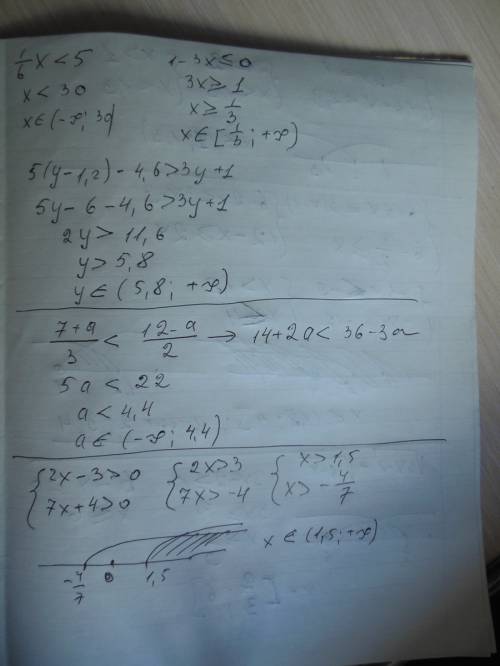 1/6 x < 5
x < 30
x ∈ (-∞; 30)
1 - 3x ≤ 0
3x ≥ 1
x ≥ 1/3
x ∈ [1/3; +∞)
5(y-1,2) - 4,6 > 3y + 1
5y - 6 - 4,6 > 3y + 1
2y > 11,6
y > 5,8
y ∈ (5,8; +∞)
(7+a)/3 < (12-a)/2 → 14+2a < 36-3a
5a < 22
a < 4,4
a ∈ (-∞; 4,4)
{2x-3>0 {2x>3 {x>1,5
{7x+4>0 {7x>-4 {x>-4/7
x ∈ (1,5; +∞)
-4/7 0 1,5